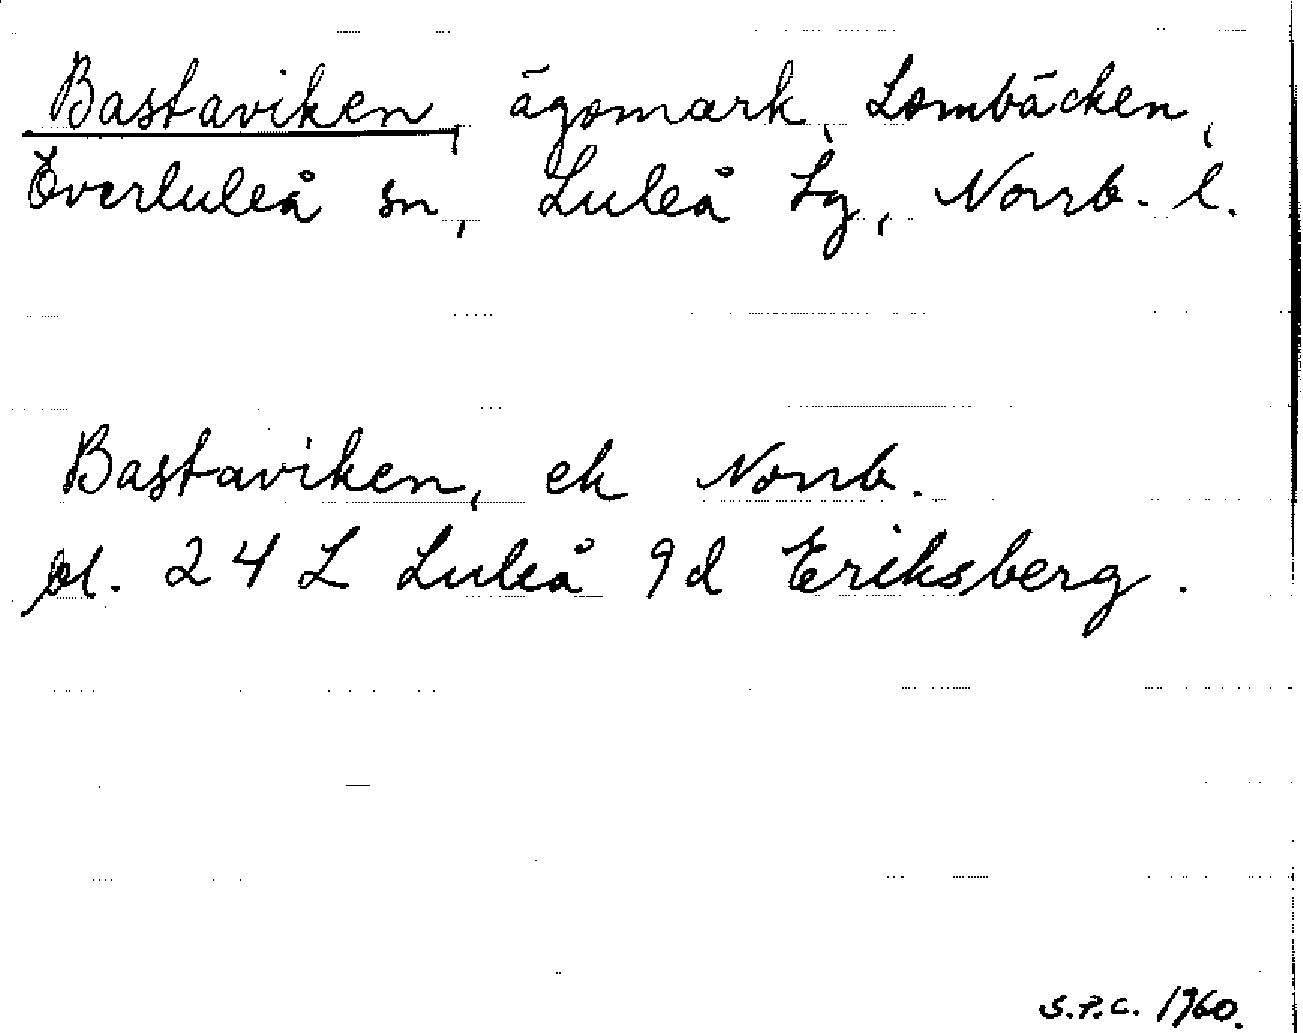 Bastaviken, ägomark, Lombäcken,
Överluleå sn, Luleå tg, Norrb. l.
Bastaviken, ek Norrb.
bl. 24 L Luleå 9d Eriksberg.
S.P.C. 1960.